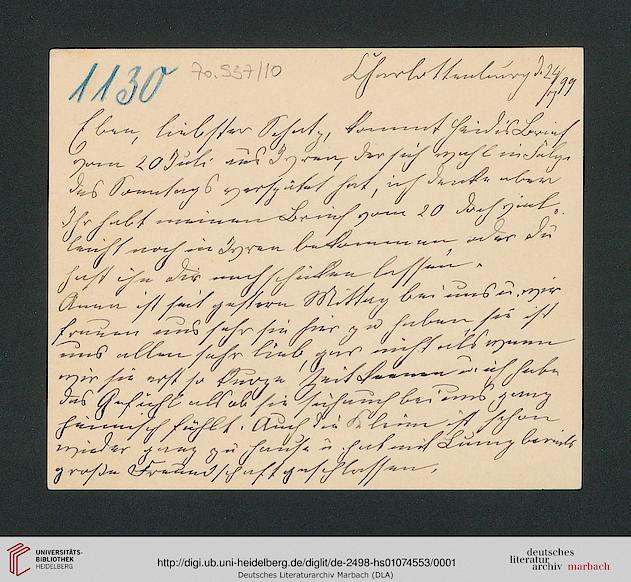 1130 70.937/10
Charlottenburg d. 24/7 99
Eben, liebster Schatz, kommt Heidis Brief
vom 20 Juli aus Igren, der sich wohl in Folge
des Sonntags verspätet hat, ich denke aber
Ihr habt meinen Brief vom 20 doch viel-
leicht noch in Igren bekommen oder Du
hast ihn Dir nachschicken lassen.
Anna ist seit gestern Mittag bei uns u. wir
freuen uns sehr sie hier zu haben sie ist
uns allen sehr lieb, gar nicht als wenn
wir sie erst so kurze Zeit kennen u. ich habe
das Gefühl als ob sie sich auch bei uns ganz
heimisch fühlt. Auch die Kleine ist schon
wieder ganz zu Hause u. hat mit bereits
große Freundschaft geschlossen.
UNIVERSITÄTS-
BIBLIOTHEK
HEIDELBERG
http://digi.ub.uni-heidelberg.de/diglit/de-2498-hs01074553/0001
Deutsches Literaturarchiv Marbach (DLA)
deutsches
literatur
archiv marbach